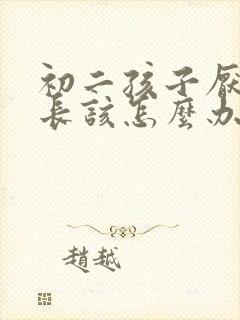 初二孩子
長該怎麼办
趙越